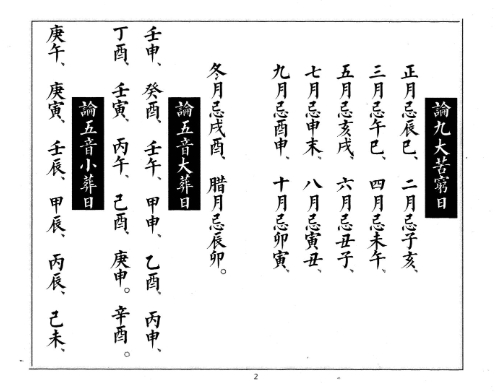 論九大苦窮日
正月忌辰巳、二月忌子亥、
三月忌午巳、四月忌未午、
五月忌亥戌、六月忌丑子、
七月忌申未、八月忌寅丑、
九月忌酉申、十月忌卯寅、
冬月忌戌酉、腊月忌辰卯。
論五音大葬日
壬申、癸酉、壬午、甲申、乙酉、丙申、
丁酉、壬寅、丙午、己酉、庚申。辛酉。
論五音小葬日
庚午、庚寅、壬辰、甲辰、丙辰、己未、
2